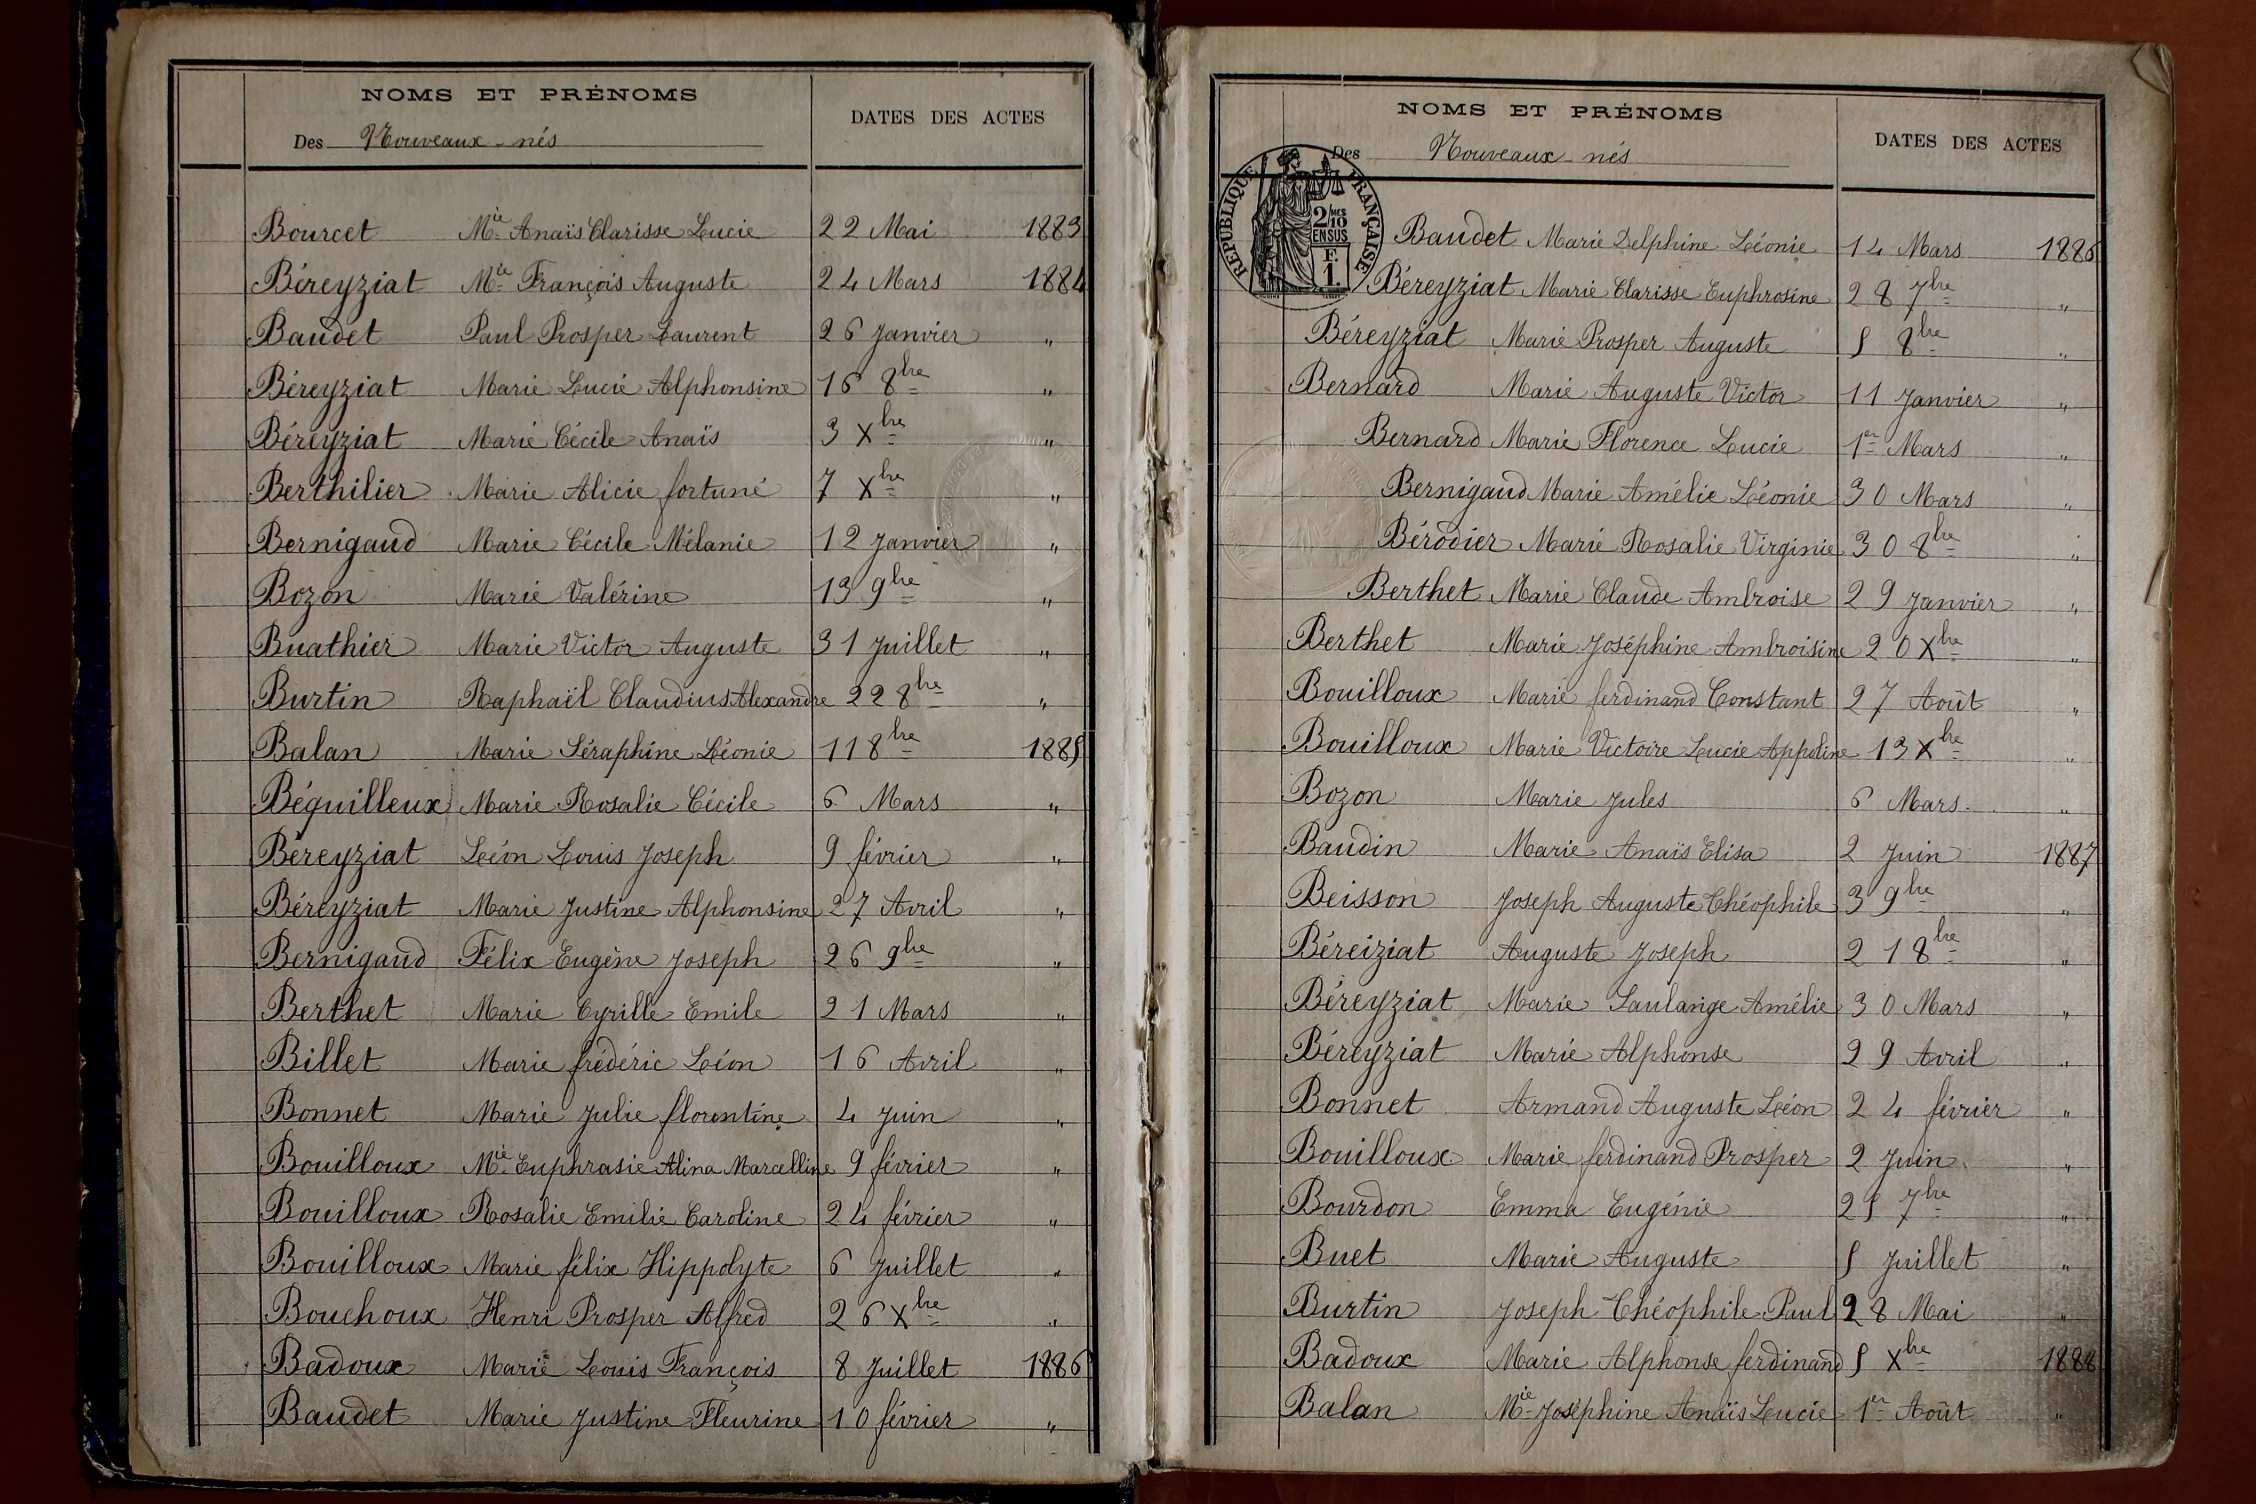 NOMS ET PRÉNOMS
DATES DES ACTES
Des Nouveaux-nés
Bourcet Mie Anaïs Clarisse Lucie 22 Mai 1883
Béreyziat Mie François Auguste 24 Mars 1884
Baudet Paul Prosper Laurent 26 Janvier "
Béreyziat Marie Lucie Alphonsine 16 8bre "
Béreyziat Marie Cécile Anaïs 3 Xbre "
Berthilier Marie Alicie fortuné 7 Xbre "
Bernigaud Marie Cécile Mélanie 12 Janvier "
Bozon Marie Valérine 13 9bre "
Buathier Marie Victor Auguste 31 Juillet "
Burtin Raphaël Claudius Alexandre 22 8bre "
Balan Marie Séraphine Léonie 11 8bre 1885
Béguilleux Marie Rosalie Cécile 6 Mars "
Béreyziat Léon Louis Joseph 9 février "
Béreyziat Marie Justine Alphonsine 27 Avril "
Bernigaud Félix Eugène Joseph 26 9bre "
Berthet Marie Cyrille Emile 21 Mars "
Billet Marie frédéric Léon 16 Avril "
Bonnet Marie Julie florentine 4 Juin "
Bouilloux Mie Euphrasie Alina Marcelline 9 février "
Bouilloux Rosalie Emilie Caroline 24 février "
Bouilloux Marie félix Hippolyte 6 Juillet "
Bouchoux Henri Prosper Alfred 26 Xbre "
Badoux Marie Louis François 8 Juillet 1886
Baudet Marie Justine Fleurine 10 février "
NOMS ET PRÉNOMS
DATES DES ACTES
Des Nouveaux-nés
RÉPUBLIQUE FRANÇAISE
2/10 MES
EN SUS
F.
1.
Baudet Marie Delphine Léonie 14 Mars 1886
Béreyziat Marie Clarisse Euphrosine 28 7bre "
Béreyziat Marie Prosper Auguste 5 8bre "
Bernard Marie Auguste Victor 11 Janvier "
Bernard Marie Florence Lucie 1er Mars "
Bernigaud Marie Amélie Léonie 30 Mars "
Bérodier Marie Rosalie Virginie 30 8bre "
Berthet Marie Claude Ambroise 29 Janvier "
Berthet Marie Joséphine Ambroisine 20 Xbre "
Bouilloux Marie ferdinand Constant 27 Août "
Bouilloux Marie Victoire Lucie Appoline 13 Xbre "
Bozon Marie Jules 6 Mars "
Baudin Marie Anaïs Elisa 2 Juin 1887
Beisson Joseph Auguste Théophile 3 9bre "
Béreiziat Auguste Joseph 21 8bre "
Béreyziat Marie Saulange Amélie 30 Mars "
Béreyziat Marie Alphonse 29 Avril "
Bonnet Armand Auguste Léon 24 février "
Bouilloux Marie ferdinand Prosper 2 Juin "
Bourdon Emma Eugénie 25 7bre "
Buet Marie Auguste 5 Juillet "
Burtin Joseph Théophile Paul 28 Mai "
Badoux Marie Alphonse ferdinand 5 Xbre 1888
Balan Mie Joséphine Anaïs Lucie 1er Août "